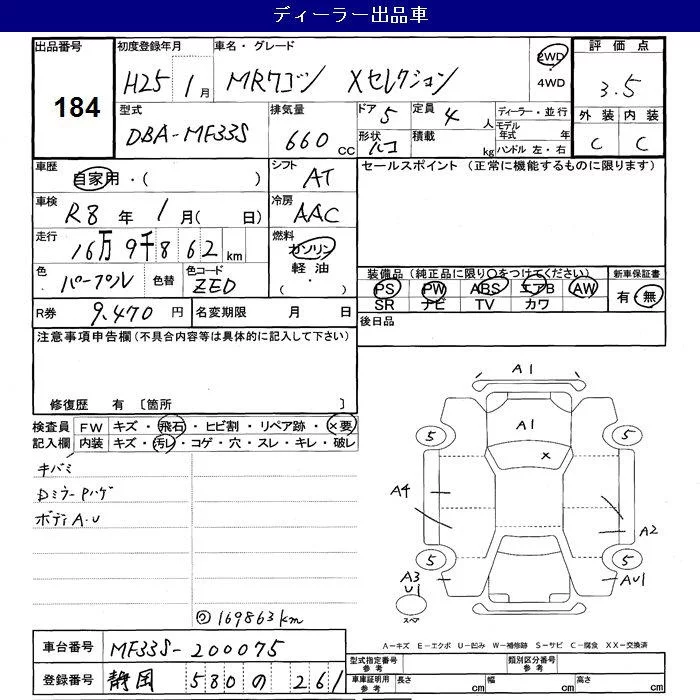 ディーラー出品車
出品番号 初度登録年月 車名・グレード 2WD 評価点
184 H25 1月 MRワゴン Xセレクション 4WD 3.5
型式 排気量 ドア 5 定員 4人 ディーラー・並行 外装 内装
DBA-MF33S 660cc 形状 積載 kg モデル年式 年 C C
ハンドル 左・右
車歴 自家用・( ) シフト AT セールスポイント (正常に機能するものに限ります)
車検 R8年 1月( 日) 冷房 AAC
走行 16万9千862km 燃料 ガソリン
軽油
( ・ )
色 パープル 色替 色コード ZED 装備品(純正品に限り○をつけてください) 新車保証書
PS PW ABS エアB AW 有・無
SR ナビ TV カワ
R券 9,470円 名変期限 月 日 後日品
注意事項申告欄(不具合内容等は具体的に記入して下さい)
修復歴 有 〔箇所 〕
検査員 FW キズ・飛石・ヒビ割・リペア跡・×要
記入欄 内装 キズ・汚レ・コゲ・穴・スレ・キレ・破レ
キバミ
Dミラー Pハゲ
ボディA.U
169863km
A1
A1
×
5 5
A4
A2
5 5
A3
U1
AU1
スペア
A-キズ E-エクボ U-凹み W-補修跡 S-サビ C-腐食 XX-交換済
車台番号 MF33S-200075 型式指定番号 参考 類別区分番号 参考
登録番号 静岡 580 の 261 車庫証明用 参考 長さ cm 幅 cm 高さ cm